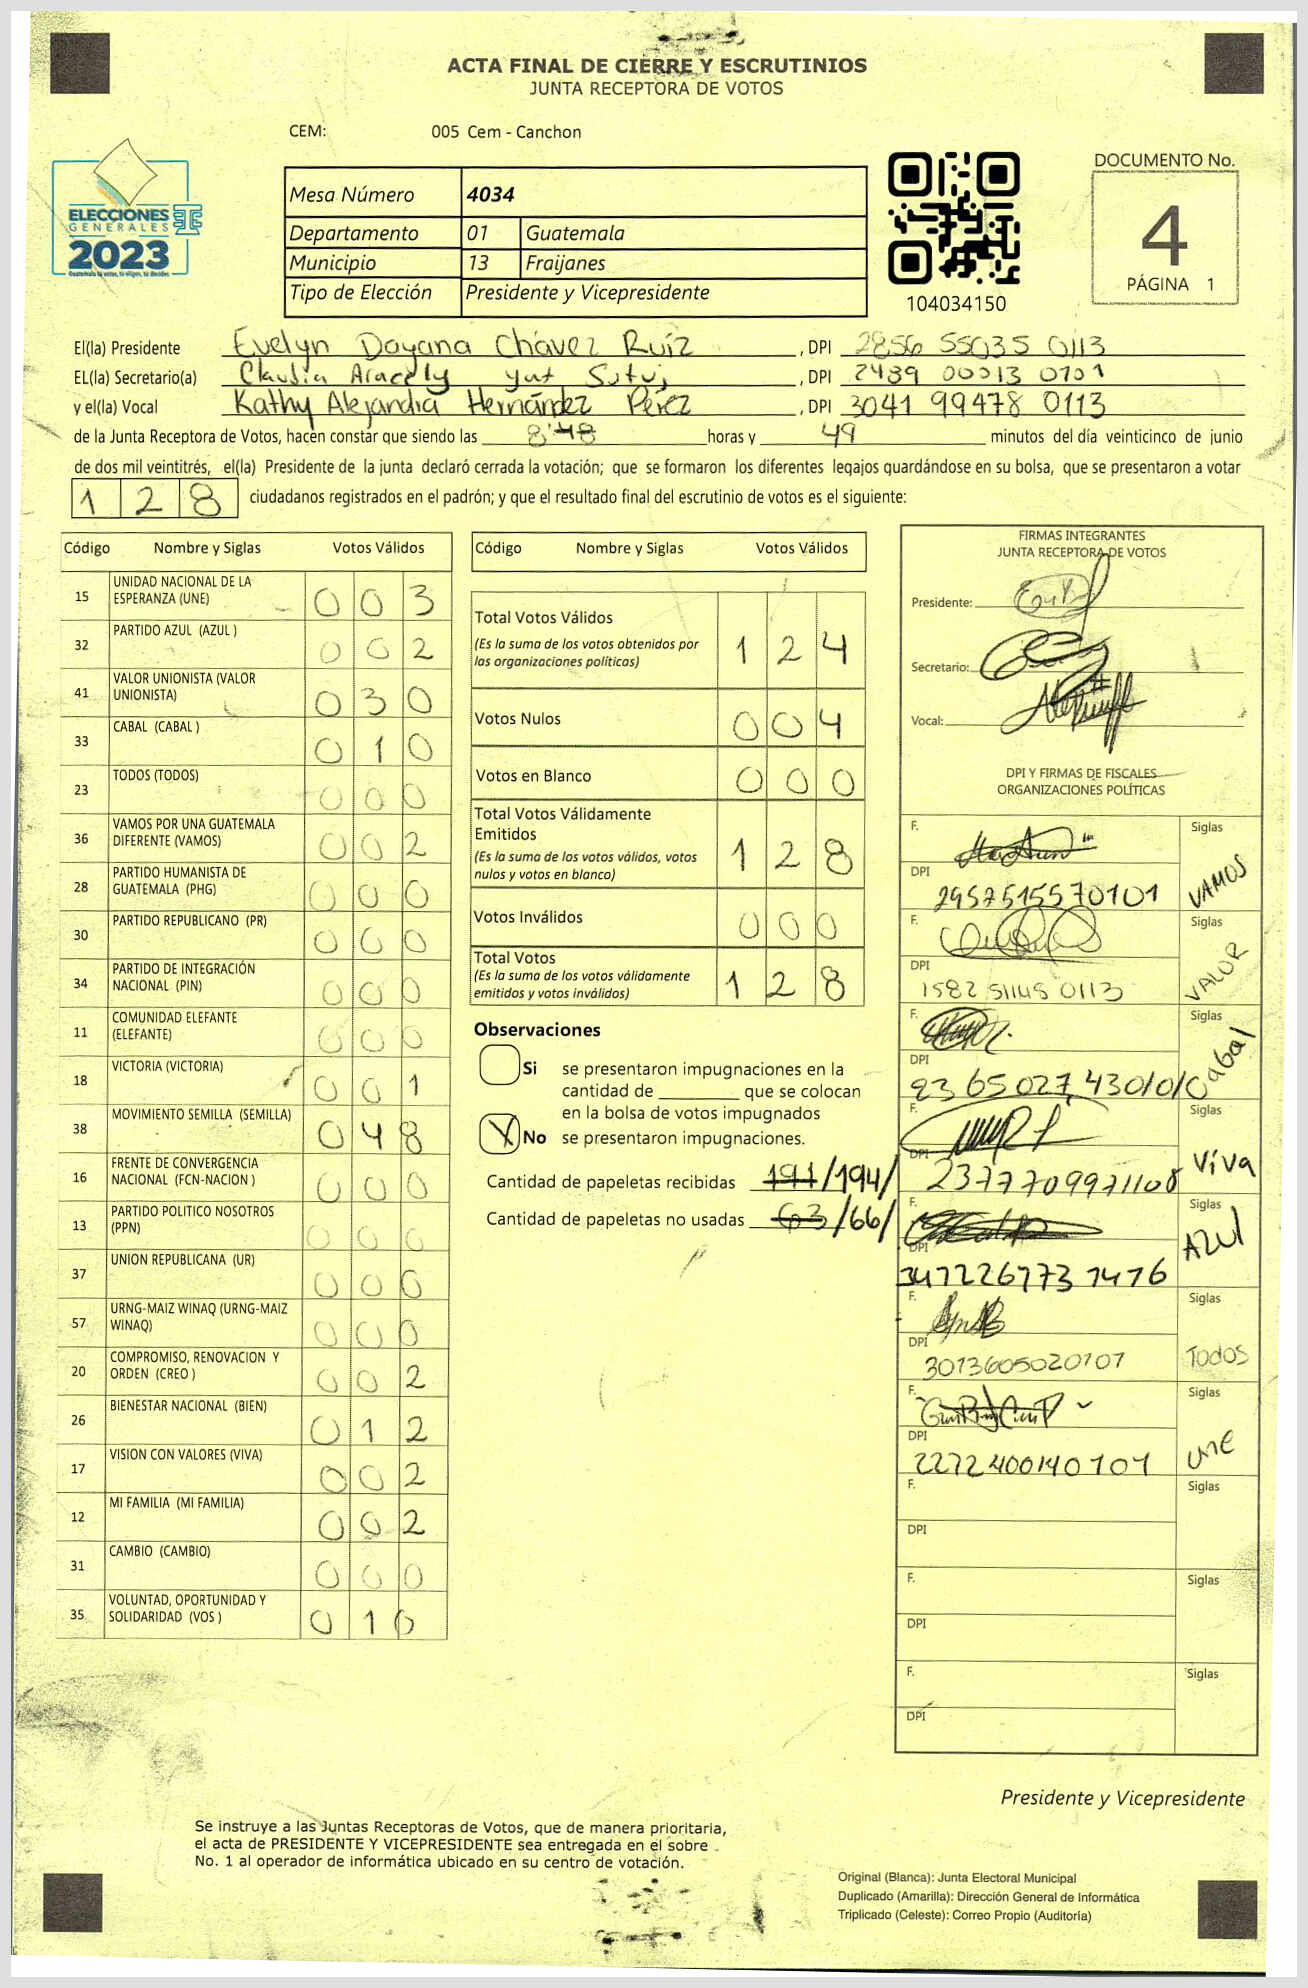 ACTA FINAL DE CIERRE Y ESCRUTINIOS
JUNTA RECEPTORA DE VOTOS
CEM: 005 Cem - Canchon
ELECCIONES
GENERALES
2023
Mesa Número 4034
Departamento 01 Guatemala
Municipio 13 Fraijanes
Tipo de Elección Presidente y Vicepresidente
104034150
DOCUMENTO No.
4
PÁGINA 1
El(la) Presidente Evelyn Dayana Chávez Ruíz , DPI 2856 55035 0113
EL(la) Secretario(a) Claudia Aracely yat , DPI 2489 00013 0101
y el(la) Vocal Kathy Alejandra Hernández Pérez , DPI 3041 99478 0113
de la Junta Receptora de Votos, hacen constar que siendo las 8:48 horas y 49 minutos del día veinticinco de junio
de dos mil veintitrés, el(la) Presidente de la junta declaró cerrada la votación; que se formaron los diferentes legajos guardándose en su bolsa, que se presentaron a votar
128 ciudadanos registrados en el padrón; y que el resultado final del escrutinio de votos es el siguiente:
Código Nombre y Siglas Votos Válidos
15 UNIDAD NACIONAL DE LA ESPERANZA (UNE) 0 0 3
32 PARTIDO AZUL (AZUL ) 0 0 2
41 VALOR UNIONISTA (VALOR UNIONISTA) 0 3 0
33 CABAL (CABAL ) 0 1 0
23 TODOS (TODOS) 0 0 0
36 VAMOS POR UNA GUATEMALA DIFERENTE (VAMOS) 0 0 2
28 PARTIDO HUMANISTA DE GUATEMALA (PHG) 0 0 0
30 PARTIDO REPUBLICANO (PR) 0 0 0
34 PARTIDO DE INTEGRACIÓN NACIONAL (PIN) 0 0 0
11 COMUNIDAD ELEFANTE (ELEFANTE) 0 0 0
18 VICTORIA (VICTORIA) 0 0 1
38 MOVIMIENTO SEMILLA (SEMILLA) 0 4 8
16 FRENTE DE CONVERGENCIA NACIONAL (FCN-NACION ) 0 0 0
13 PARTIDO POLITICO NOSOTROS (PPN) 0 0 0
37 UNION REPUBLICANA (UR) 0 0 0
57 URNG-MAIZ WINAQ (URNG-MAIZ WINAQ) 0 0 0
20 COMPROMISO, RENOVACION Y ORDEN (CREO ) 0 0 2
26 BIENESTAR NACIONAL (BIEN) 0 1 2
17 VISION CON VALORES (VIVA) 0 0 2
12 MI FAMILIA (MI FAMILIA) 0 0 2
31 CAMBIO (CAMBIO) 0 0 0
35 VOLUNTAD, OPORTUNIDAD Y SOLIDARIDAD (VOS ) 0 1 0
Código Nombre y Siglas Votos Válidos
Total Votos Válidos 1 2 4
(Es la suma de los votos obtenidos por
las organizaciones políticas)
Votos Nulos 0 0 4
Votos en Blanco 0 0 0
Total Votos Válidamente
Emitidos 1 2 8
(Es la suma de los votos válidos, votos
nulos y votos en blanco)
Votos Inválidos 0 0 0
Total Votos 1 2 8
(Es la suma de los votos válidamente
emitidos y votos inválidos)
Observaciones
Si se presentaron impugnaciones en la
cantidad de ________ que se colocan
en la bolsa de votos impugnados
X No se presentaron impugnaciones.
Cantidad de papeletas recibidas 191/194/
Cantidad de papeletas no usadas 63/66/
FIRMAS INTEGRANTES
JUNTA RECEPTORA DE VOTOS
Presidente:
Secretario:
Vocal:
DPI Y FIRMAS DE FISCALES
ORGANIZACIONES POLÍTICAS
F. Siglas VAMOS
DPI 2957515570101
F. Siglas VALOR
DPI 1582 51148 0113
F. Siglas Cabal
DPI
F. Siglas Viva
DPI 2377709971108
F. Siglas AZUl
DPI
F. Siglas Todos
DPI 3013605020101
F. Siglas une
DPI 2272400140101
F. Siglas
DPI
F. Siglas
DPI
F. Siglas
DPI
Presidente y Vicepresidente
Se instruye a las Juntas Receptoras de Votos, que de manera prioritaria,
el acta de PRESIDENTE Y VICEPRESIDENTE sea entregada en el sobre
No. 1 al operador de informática ubicado en su centro de votación.
Original (Blanca): Junta Electoral Municipal
Duplicado (Amarilla): Dirección General de Informática
Triplicado (Celeste): Correo Propio (Auditoría)